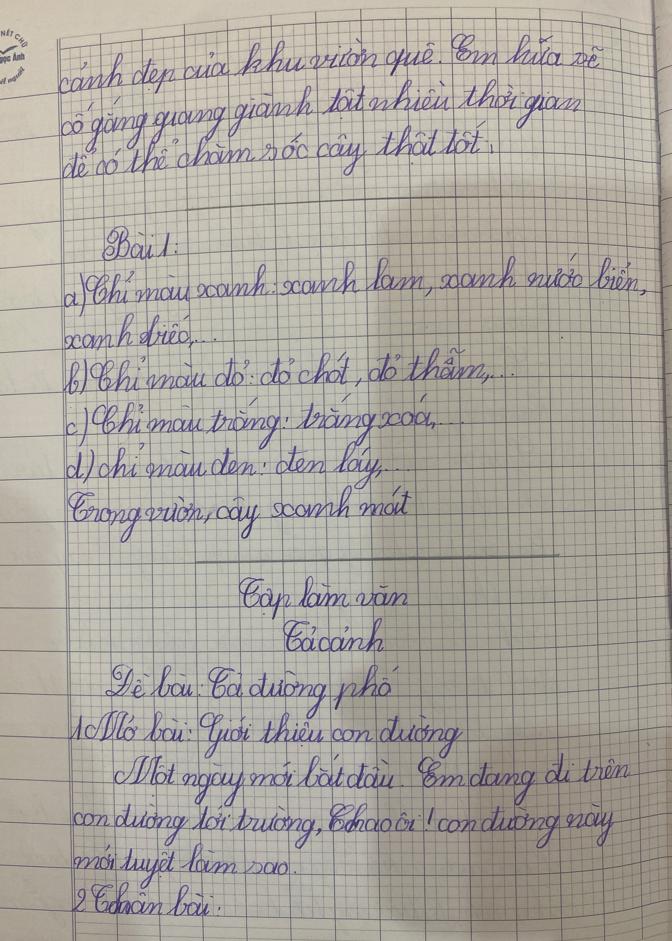 NÉT CHỮ
Ngọc Ánh
nết người
cảnh đẹp của khu vườn quê. Em hứa sẽ
cố gắng quang giành tất nhiều thời gian
để có thể chăm sóc cây thật tốt.
Bài 1:
a) Chỉ màu xanh: xanh lam, xanh nước biển,
xanh biếc,...
b) Chỉ màu đỏ: đỏ chót, đỏ thẫm,...
c) Chỉ màu trắng: trắng xoá,...
d) chỉ màu đen: đen láy,...
Trong vườn, cây xanh mát
Tập làm văn
Tả cảnh
Đề bài: Tả đường phố
1 Mở bài: Giới thiệu con đường
Một ngày mới bắt đầu. Em đang đi trên
con đường tới trường, Chao ôi! con đường này
mới tuyệt làm sao.
2 Thân bài: